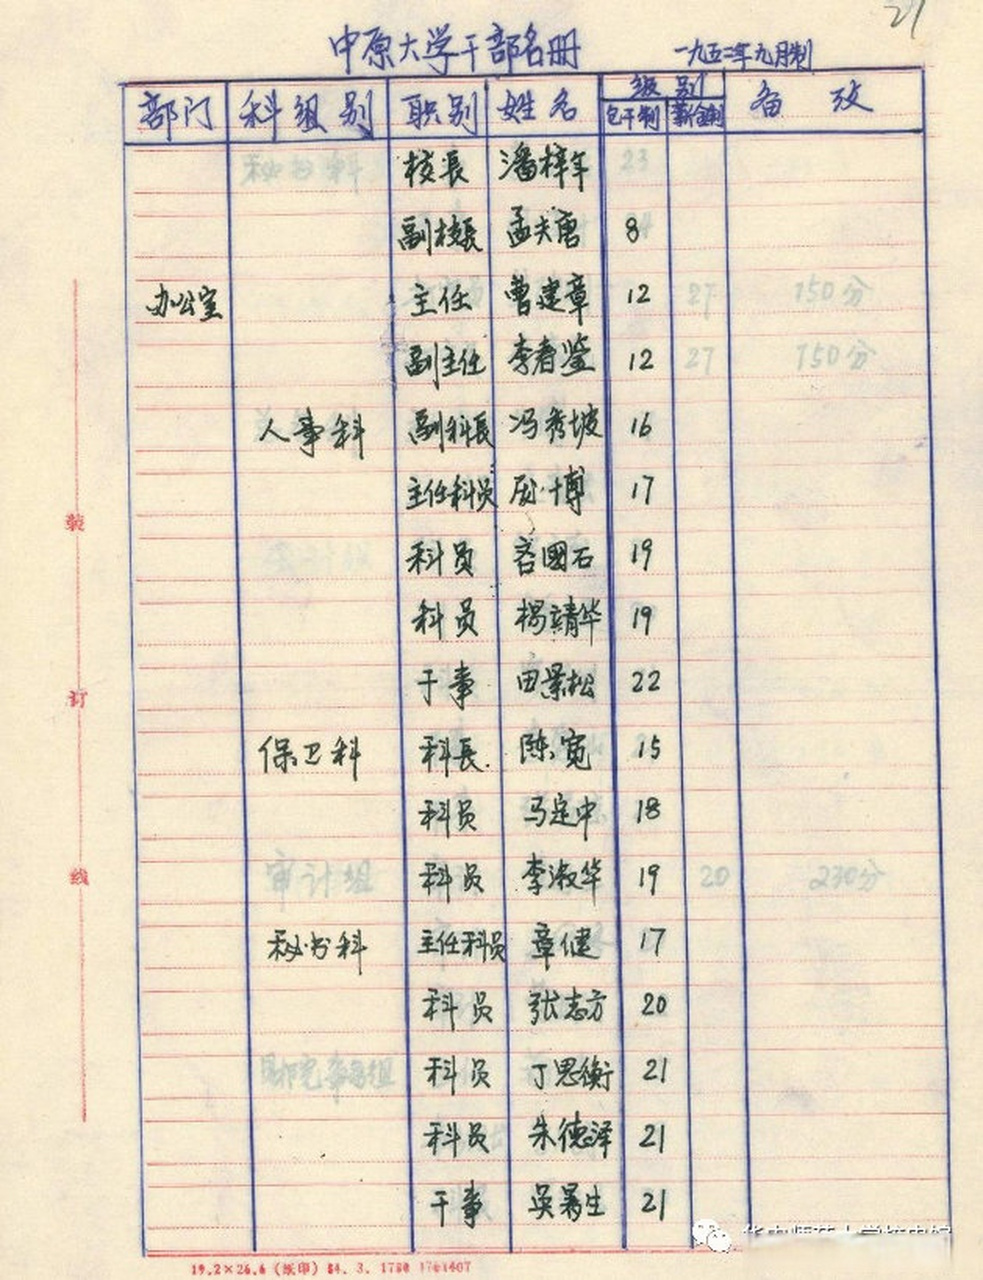 21
中原大学干部名册 一九五二年九月制
部门 科组别 职别 姓名 级别 备攷
包干制 薪金制
校長 潘梓年
副校長 孟夫唐 8
办公室 主任 曹建章 12
副主任 李春鉴 12
人事科 副科長 冯秀坡 16
主任科员 博 17
科员 國石 19
科员 楊靖华 19
干事 田景松 22
保卫科 科長 陈宽 15
科员 马定中 18
科员 李淑华 19
秘书科 主任科员 章健 17
科员 张志方 20
科员 丁思衡 21
科员 朱德泽 21
干事 吳生 21
装
订
线
19.2×26.6（纸印）84.3.1750